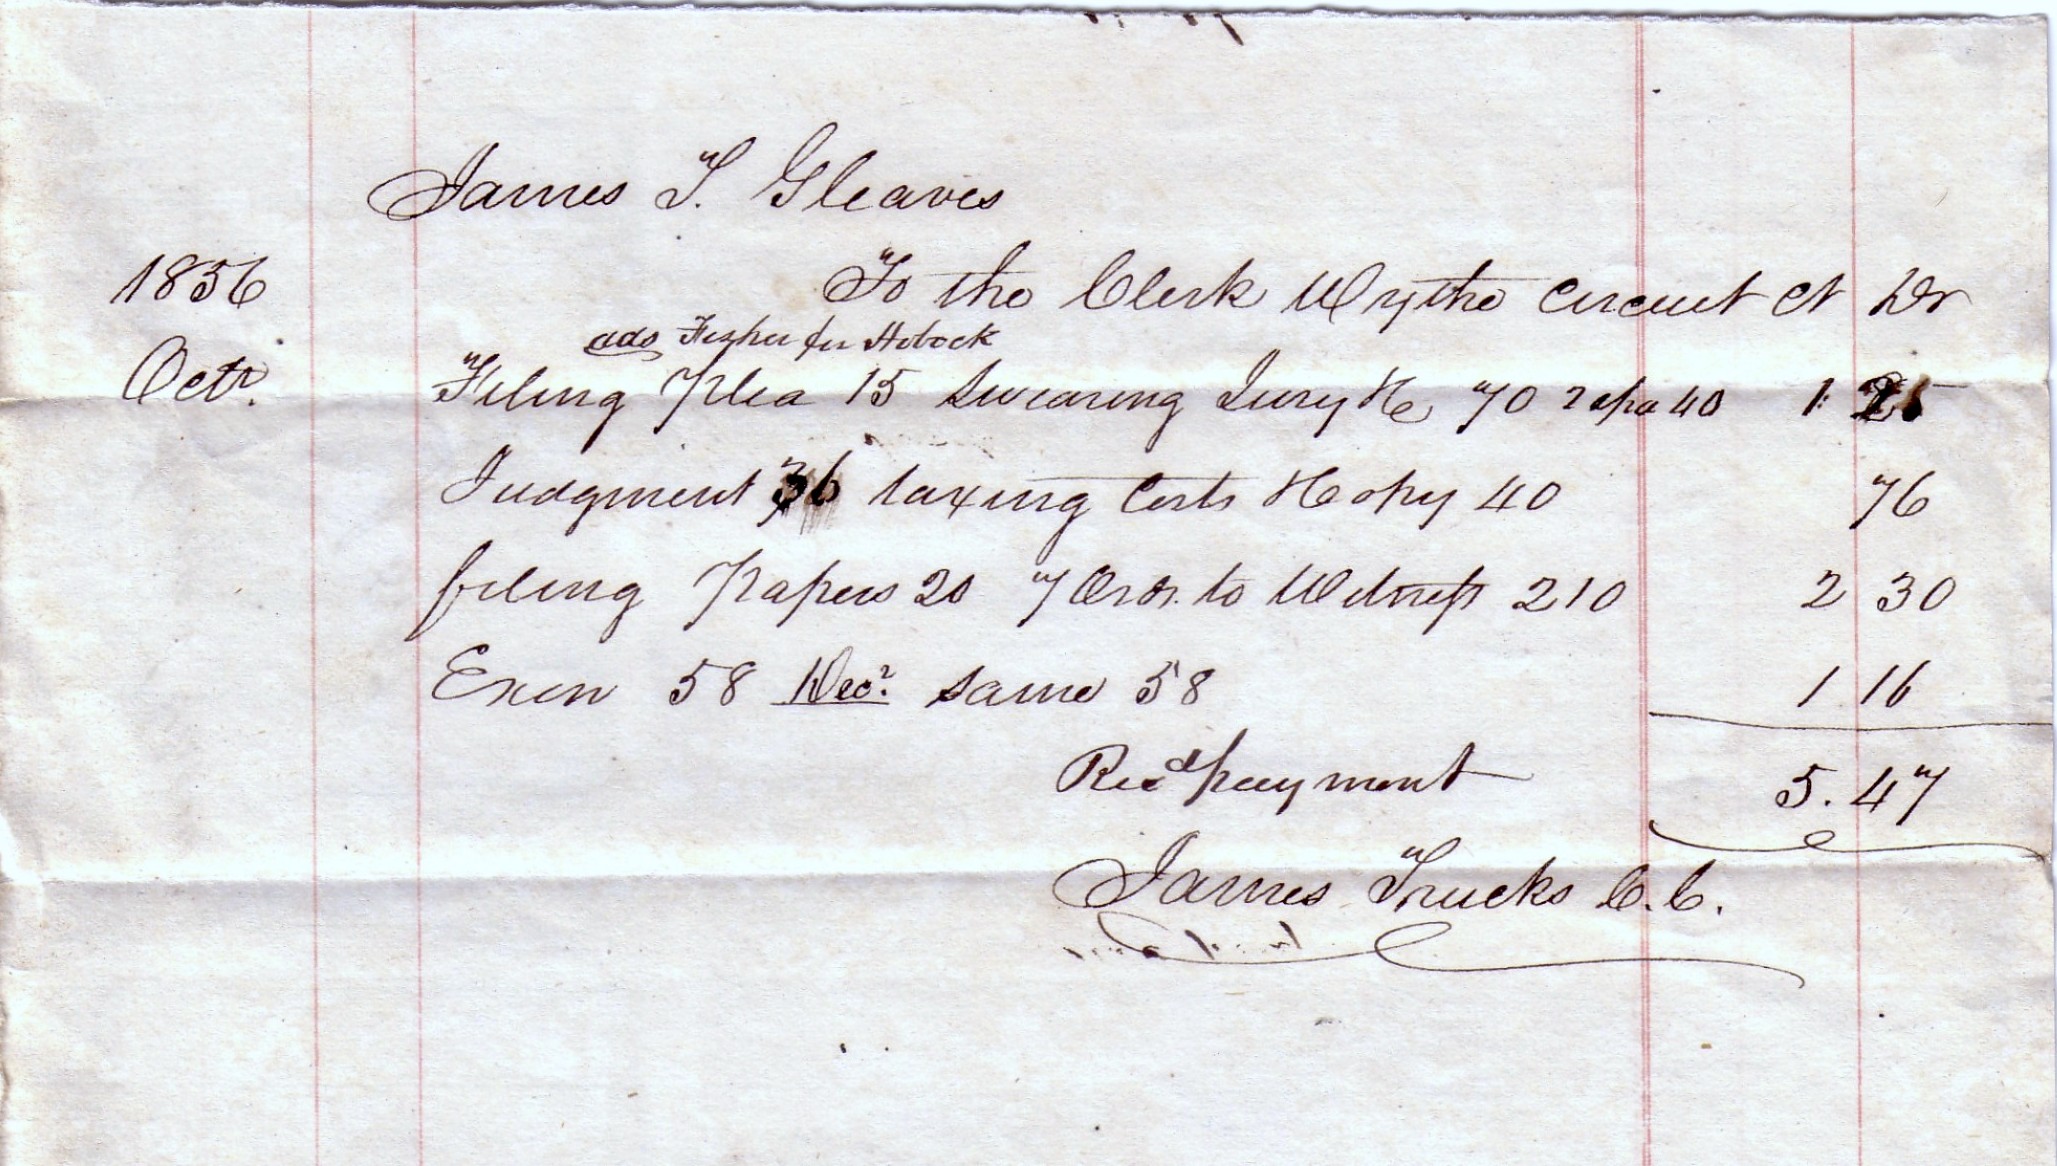 James T. Gleaves
1856 To the Clerk Wythe Circuit Ct Dr
ads Fisher for Hobock
Octr. Filing Plea 15 Swearing Jury &c 70 2 spa 40 1 25
Judgment 36 taxing Costs & Copy 40 76
filing Papers 20 7 Ords. to Witness 210 2 30
Exon 58 Decr. same 58 1 16
Recd payment 5.47
James Trucks C.C.